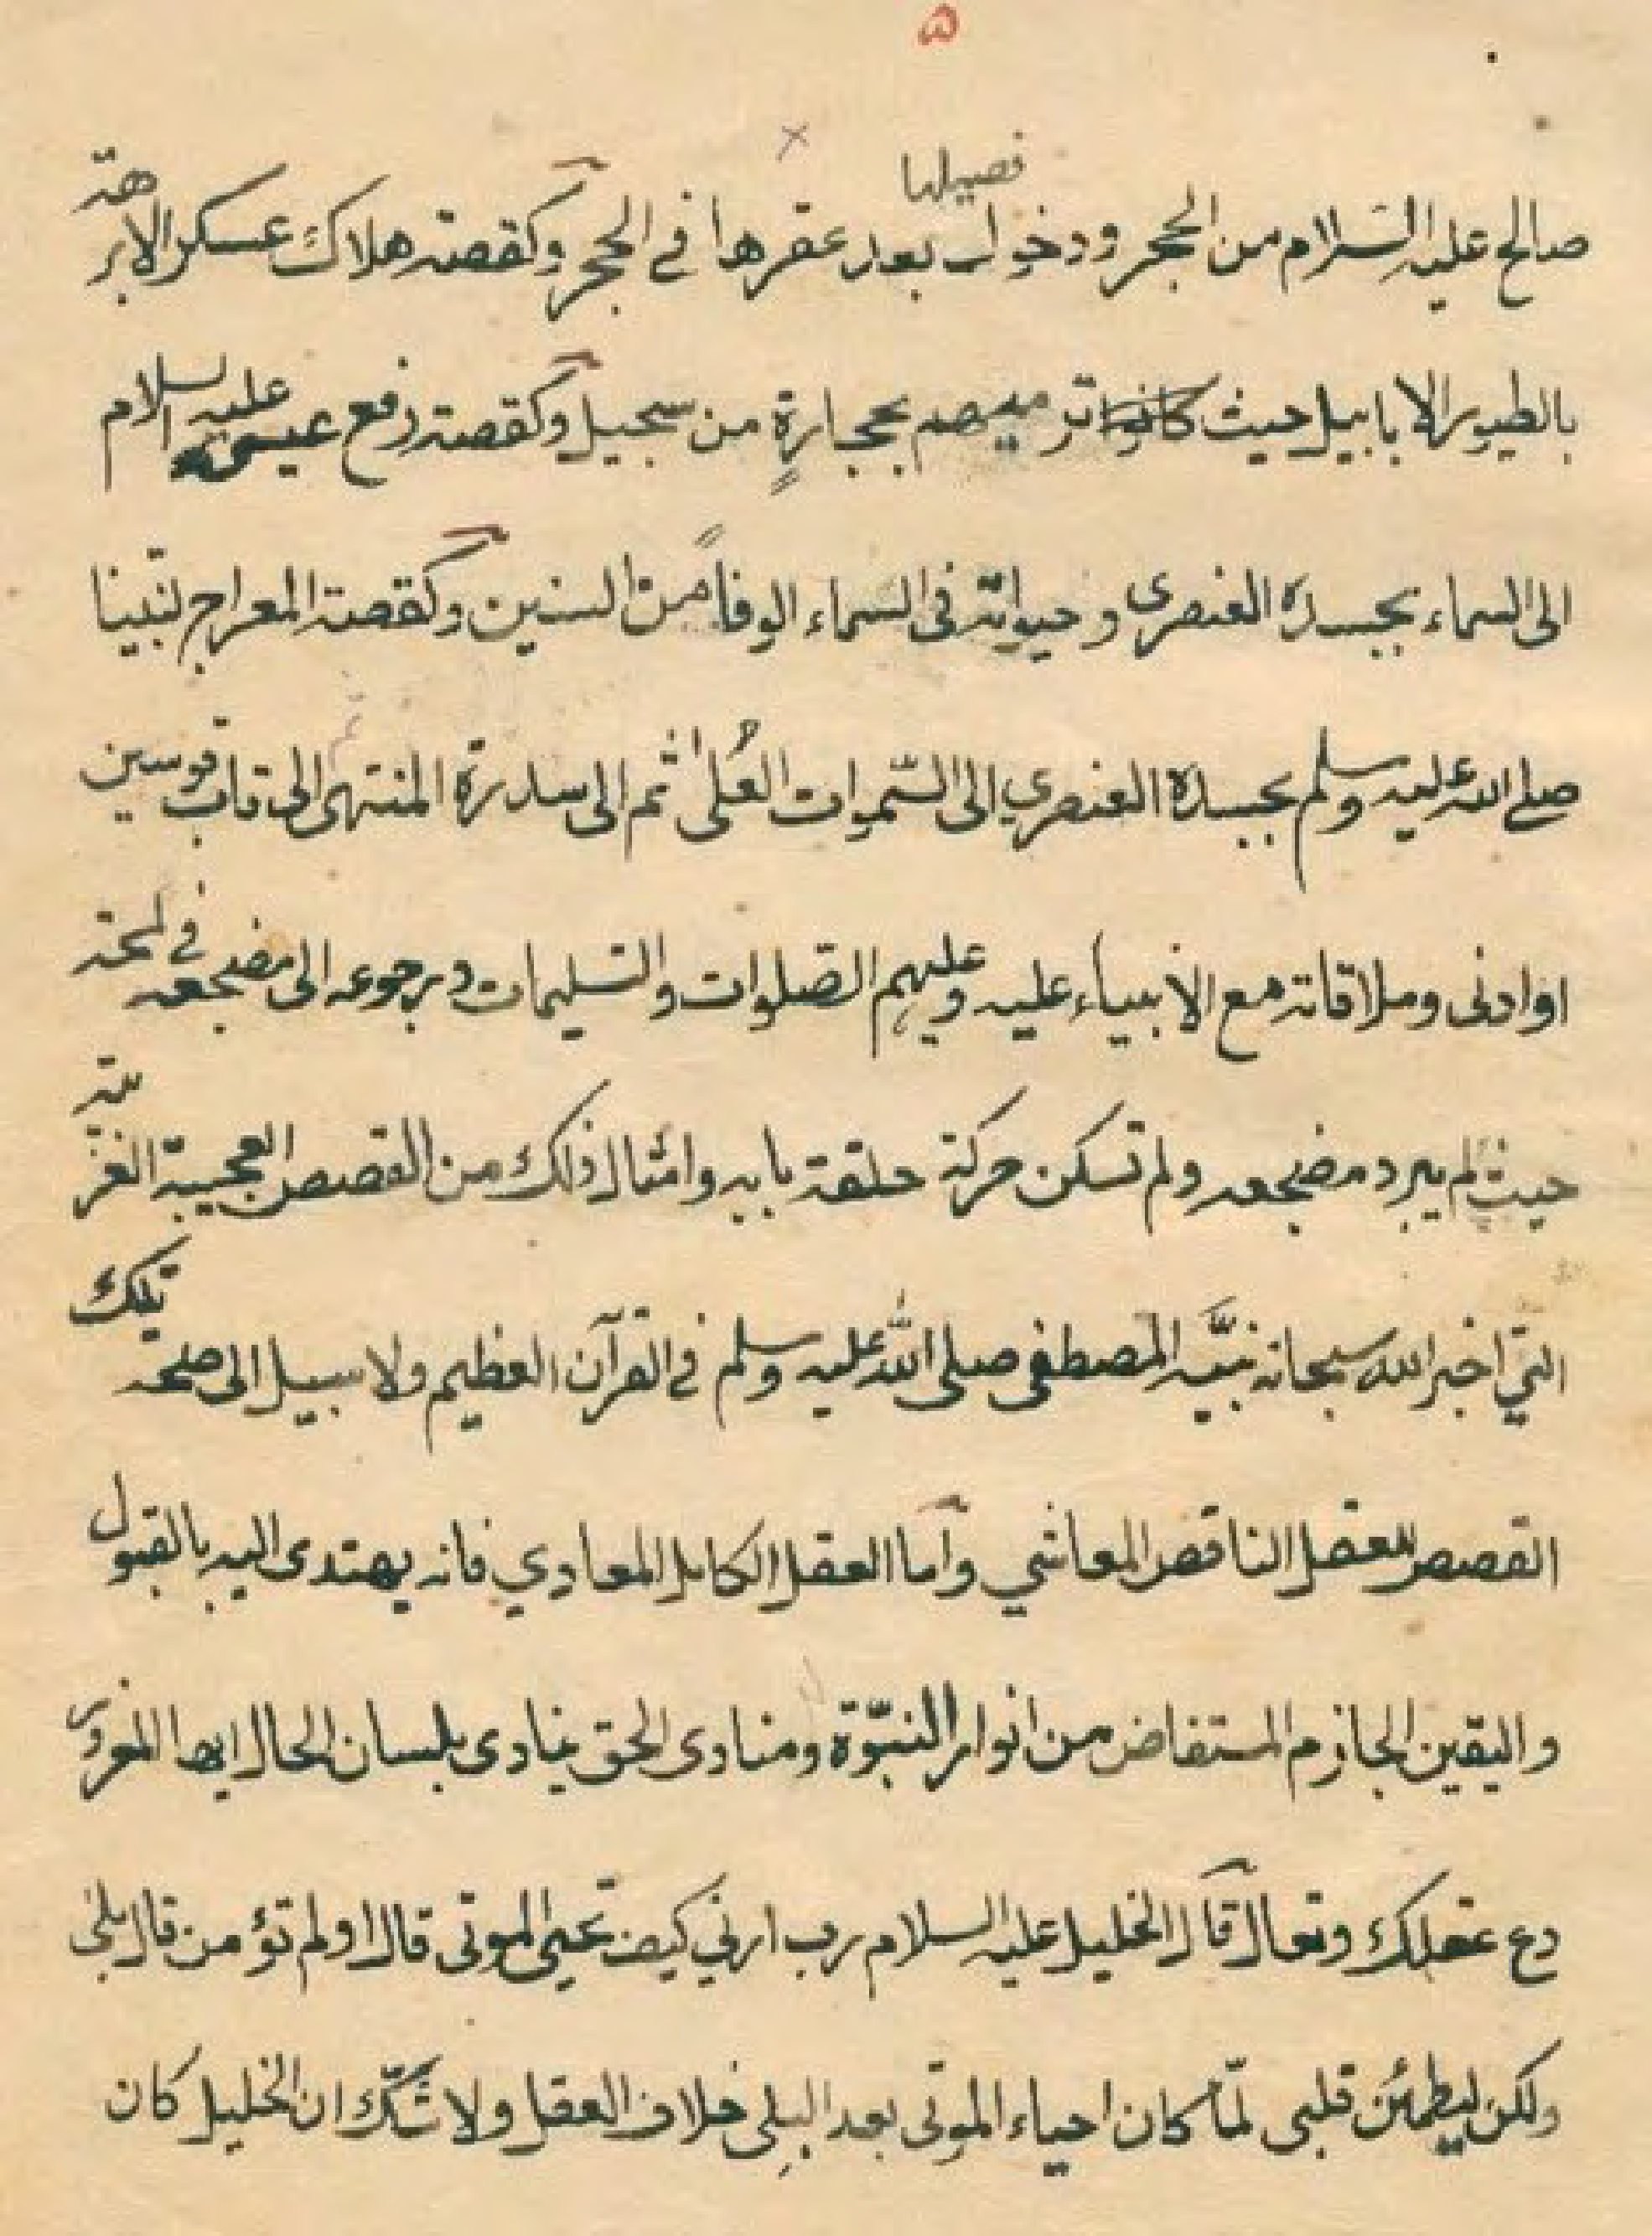 ۵
صالح عليه السّلام من الحجر ودخول فصيلها بعد عقرها في الحجر وكقصة هلاك عسكر الابرهة
بالطيور الابابيل حيث ترميهم بحجارةٍ من سجيل وكقصة رفع عيسى عليه السلام
الى السماء بجسده العنصري وحيوته فى السماء الوفاً من السنين وكقصة المعراج لنبينا
صلے الله عليه وسلم بجسده العنصري الى السّموات العُلى ثم الى سدرة المنتهى الى قاب قوسين
او ادنى وملاقاته مع الانبياء عليه وعليهم الصّلوات والتسليمات ورجوعه الى مضجعه في لمحة
حيث لم يبرد مضجعه ولم تسكن حركة حلقة بابه وامثال ذلك من القصص العجيبة الغريبة
التي اخبر الله سبحانه نبيَّه المصطفى صلى الله عليه وسلم في القرآن العظيم ولا سبيل الى صحة تلك
القصص للعقل الناقص المعاشي وأما العقل الكامل المعادي فانه يهتدى اليه بالقبول
واليقين الجازم المستفاض من انوار النبّوة ومنادى الحق ينادى بلسان الحال ايها المغرور
دع عقلك وتعال قال الخليل عليه السلام رب ارني كيف تحيى الموتى قال اولم تؤمن قال بلى
ولكن ليطمئن قلبى لمّا كان احياء الموتى بعد البِلى خلاف العقل ولا شكّ ان الخليل كان